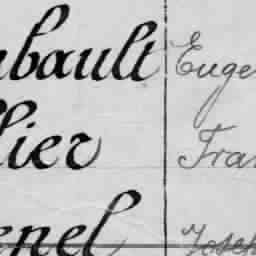 bault Euge
lier Fra
enel Josep